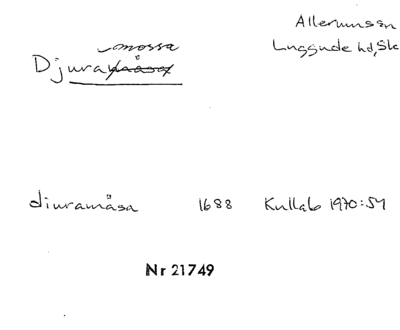 Allerums sn
mossa
Luggude hd, Sk
Djuramåsa
diuramåsa 1688 Kullab 1970:54
Nr 21749